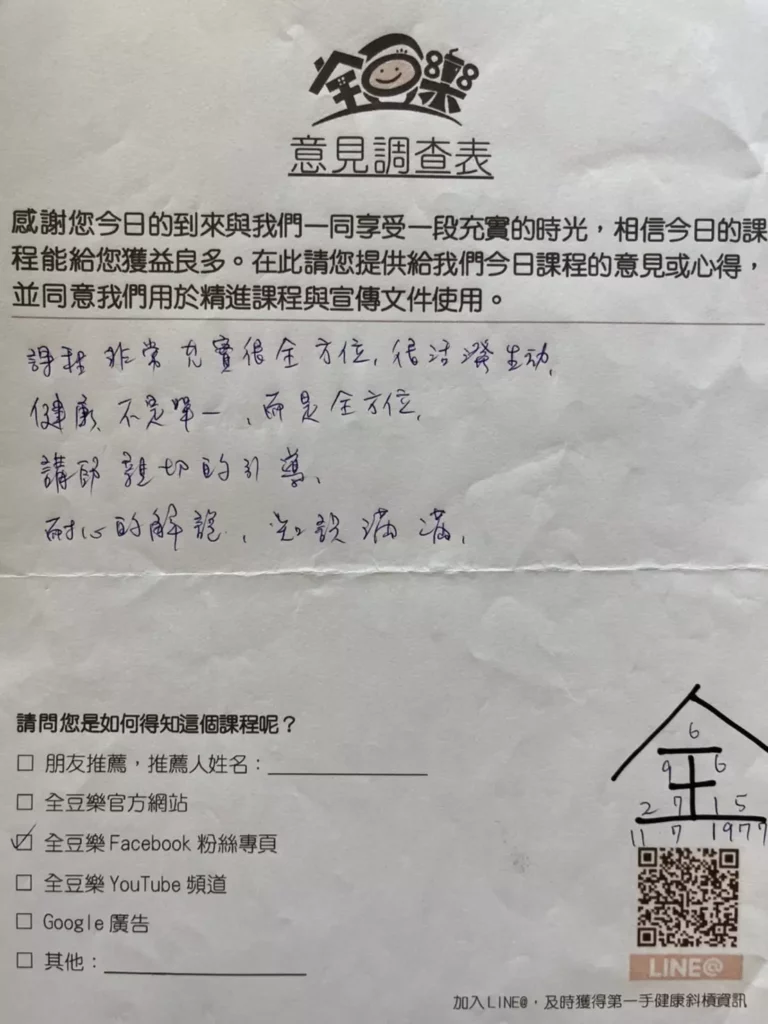 全豆樂
意見調查表
感謝您今日的到來與我們一同享受一段充實的時光，相信今日的課
程能給您獲益良多。在此請您提供給我們今日課程的意見或心得，
並同意我們用於精進課程與宣傳文件使用。
課程非常充實很全方位，很活潑生动，
健康不是單一，而是全方位，
講師親切的引導，
耐心的解說，知識滿滿，
請問您是如何得知這個課程呢？
□ 朋友推薦，推薦人姓名：
□ 全豆樂官方網站
☑ 全豆樂Facebook 粉絲專頁
□ 全豆樂YouTube 頻道
□ Google 廣告
□ 其他：
全
6
9 6
2 7 1 5
11 7 1977
LINE@
加入LINE@，及時獲得第一手健康斜槓資訊